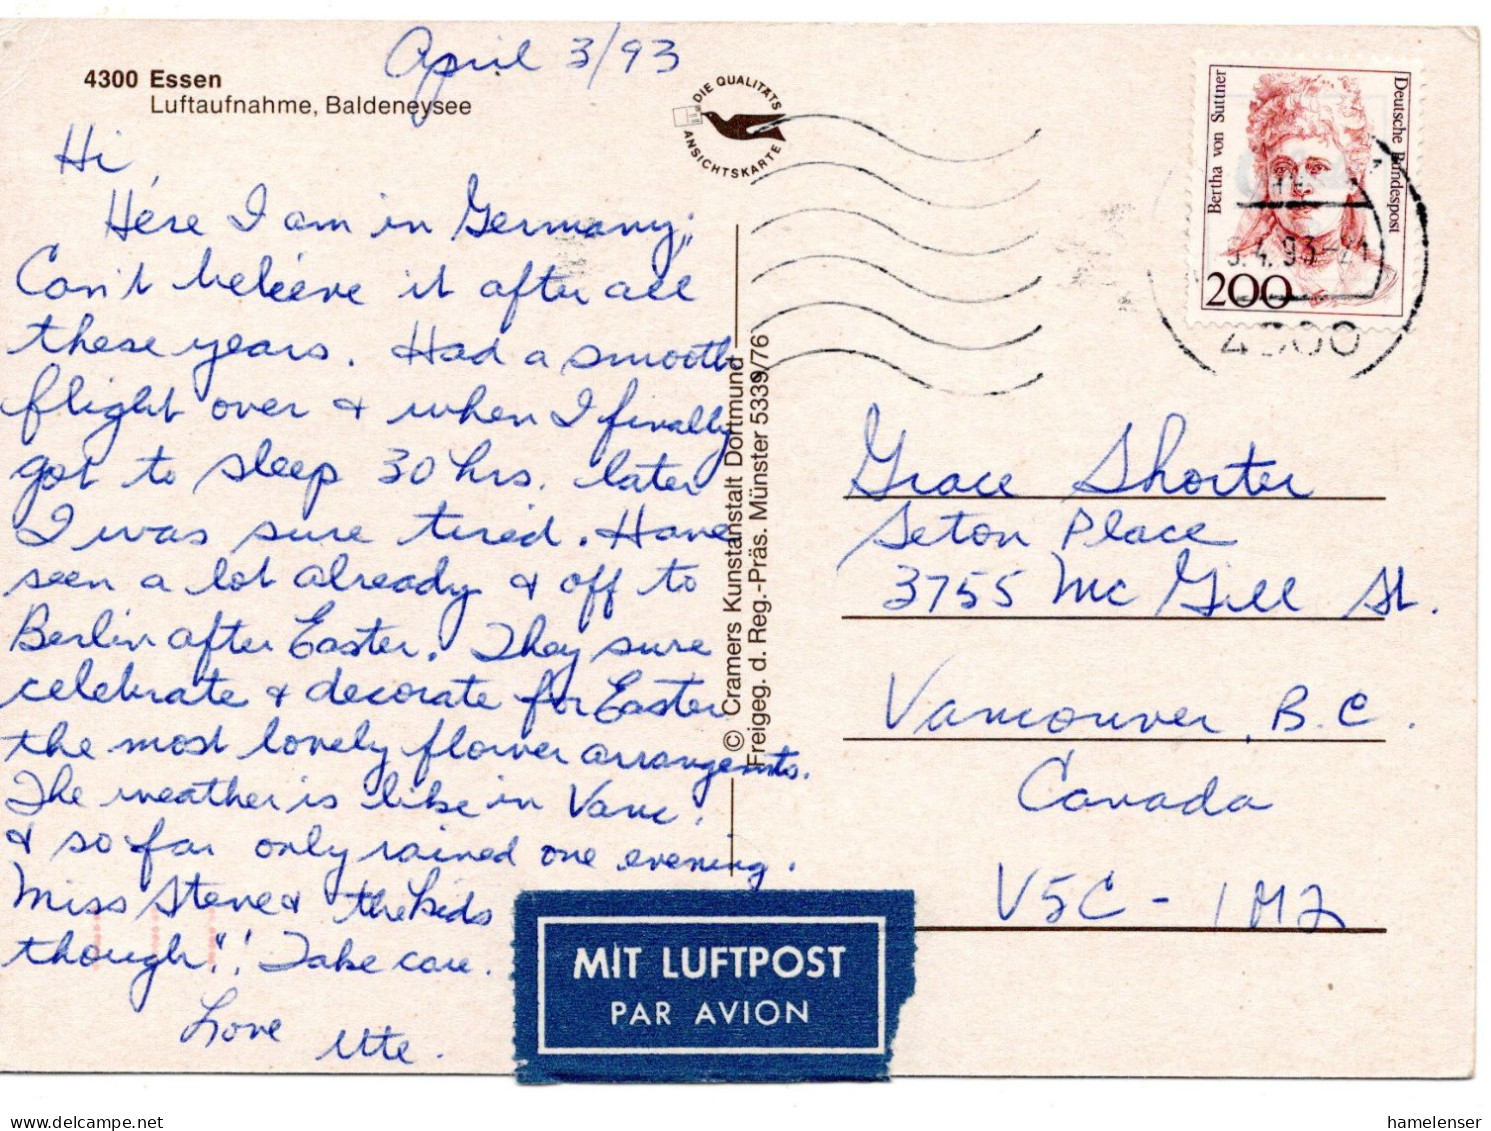 April 3/93
4300 Essen
Luftaufnahme, Baldeneysee
DIE QUALITÄTS
ANSICHTSKARTE
Hi,
Here I am in Germany;
Can't believe it after all
these years. Had a smooth
flight over & when I finally
got to sleep 30 hrs. later
I was sure tired. Have
seen a lot already & off to
Berlin after Easter. They sure
celebrate & decorate for Easter
the most lovely flower arrangemts.
The weather is like in Vanc.
& so far only rained one evening.
Miss Steve & the kids
though"! Take care.
Love Ute.
© Cramers Kunstanstalt Dortmund
Freigeg. d. Reg.-Präs. Münster 5339/76
Bertha von Suttner
Deutsche Bundespost
200
4.93-21
4300
Grace Shorter
Seton Place
3755 Mc Gill St.
Vancouver, B.C.
Canada
V5C-1M2
MIT LUFTPOST
PAR AVION
hamelenser
delcampe.net